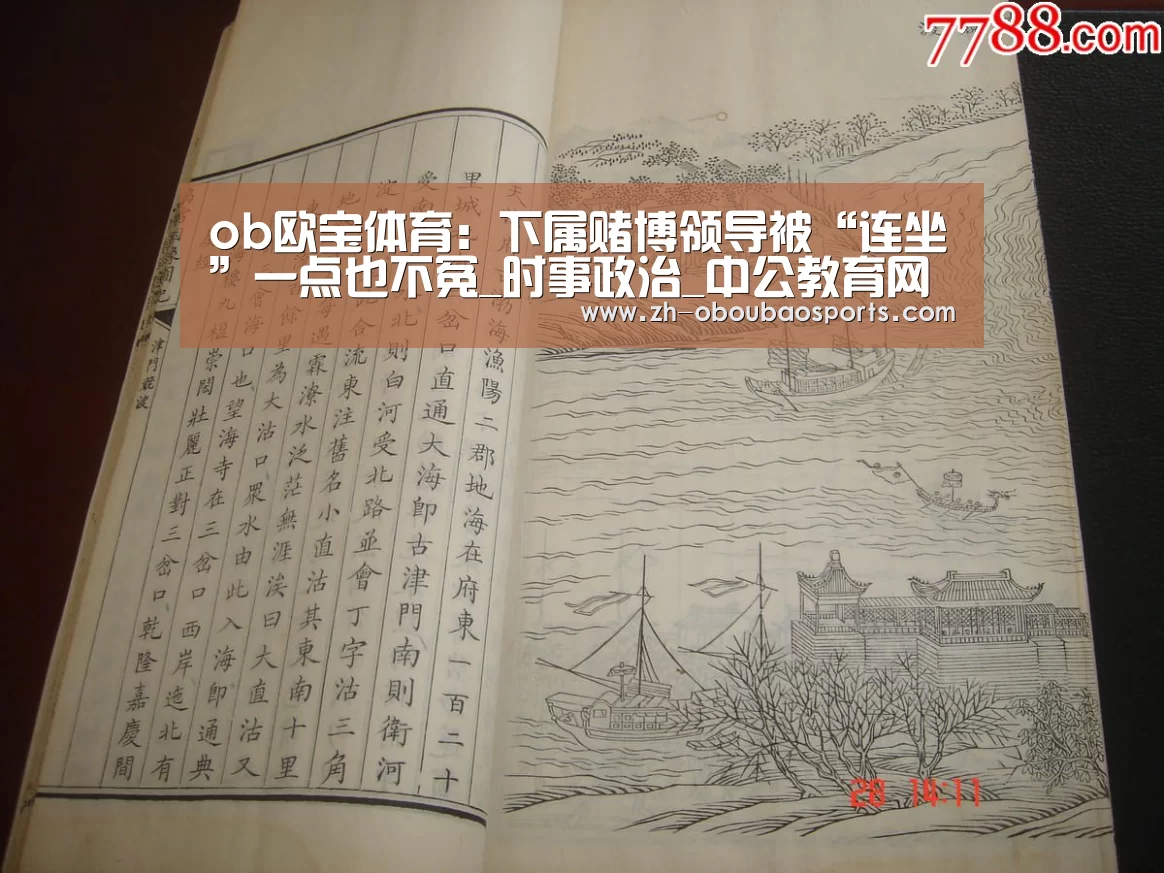 7788.com
ob欧宝体育：下属赌博领导被“连坐
”一点也不冤_时事政治_中公教育网
www.zh-oboubaosports.com
天 海漁陽二郡地海在府東一百二十
里城 岔口直通大海即古津門南則衛河
受南 北則白河受北路並會丁字沽三角
淀 合流東注舊名小直沽其東南十里
地 每遇霖潦水泛茫無涯涘曰大直沽又
東 餘里為大沽口眾水由此入海即通典
會海口也望海寺在三岔口西岸迤北有
樓九楹崇閎壯麗正對三岔口乾隆嘉慶間
圖記
津門競渡
28 14:11